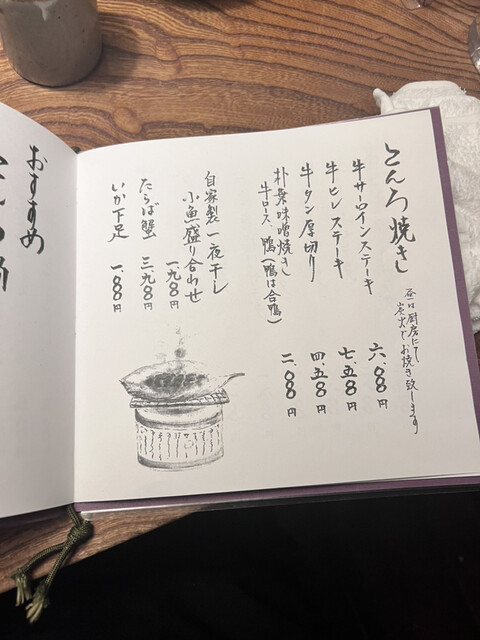 こんろ焼き
昼は厨房にて
炭火でお焼き致します
牛サーロインステーキ 六、〇〇〇円
牛ヒレステーキ 七、五〇〇円
牛タン厚切り 四、五〇〇円
朴葉味噌焼き
牛ロース、鴨(鴨は合鴨) 二、〇〇〇円
自家製一夜干し
小魚盛り合わせ 一、九〇〇円
たらば蟹 三、九〇〇円
いか下足 一、〇〇〇円
おすすめ